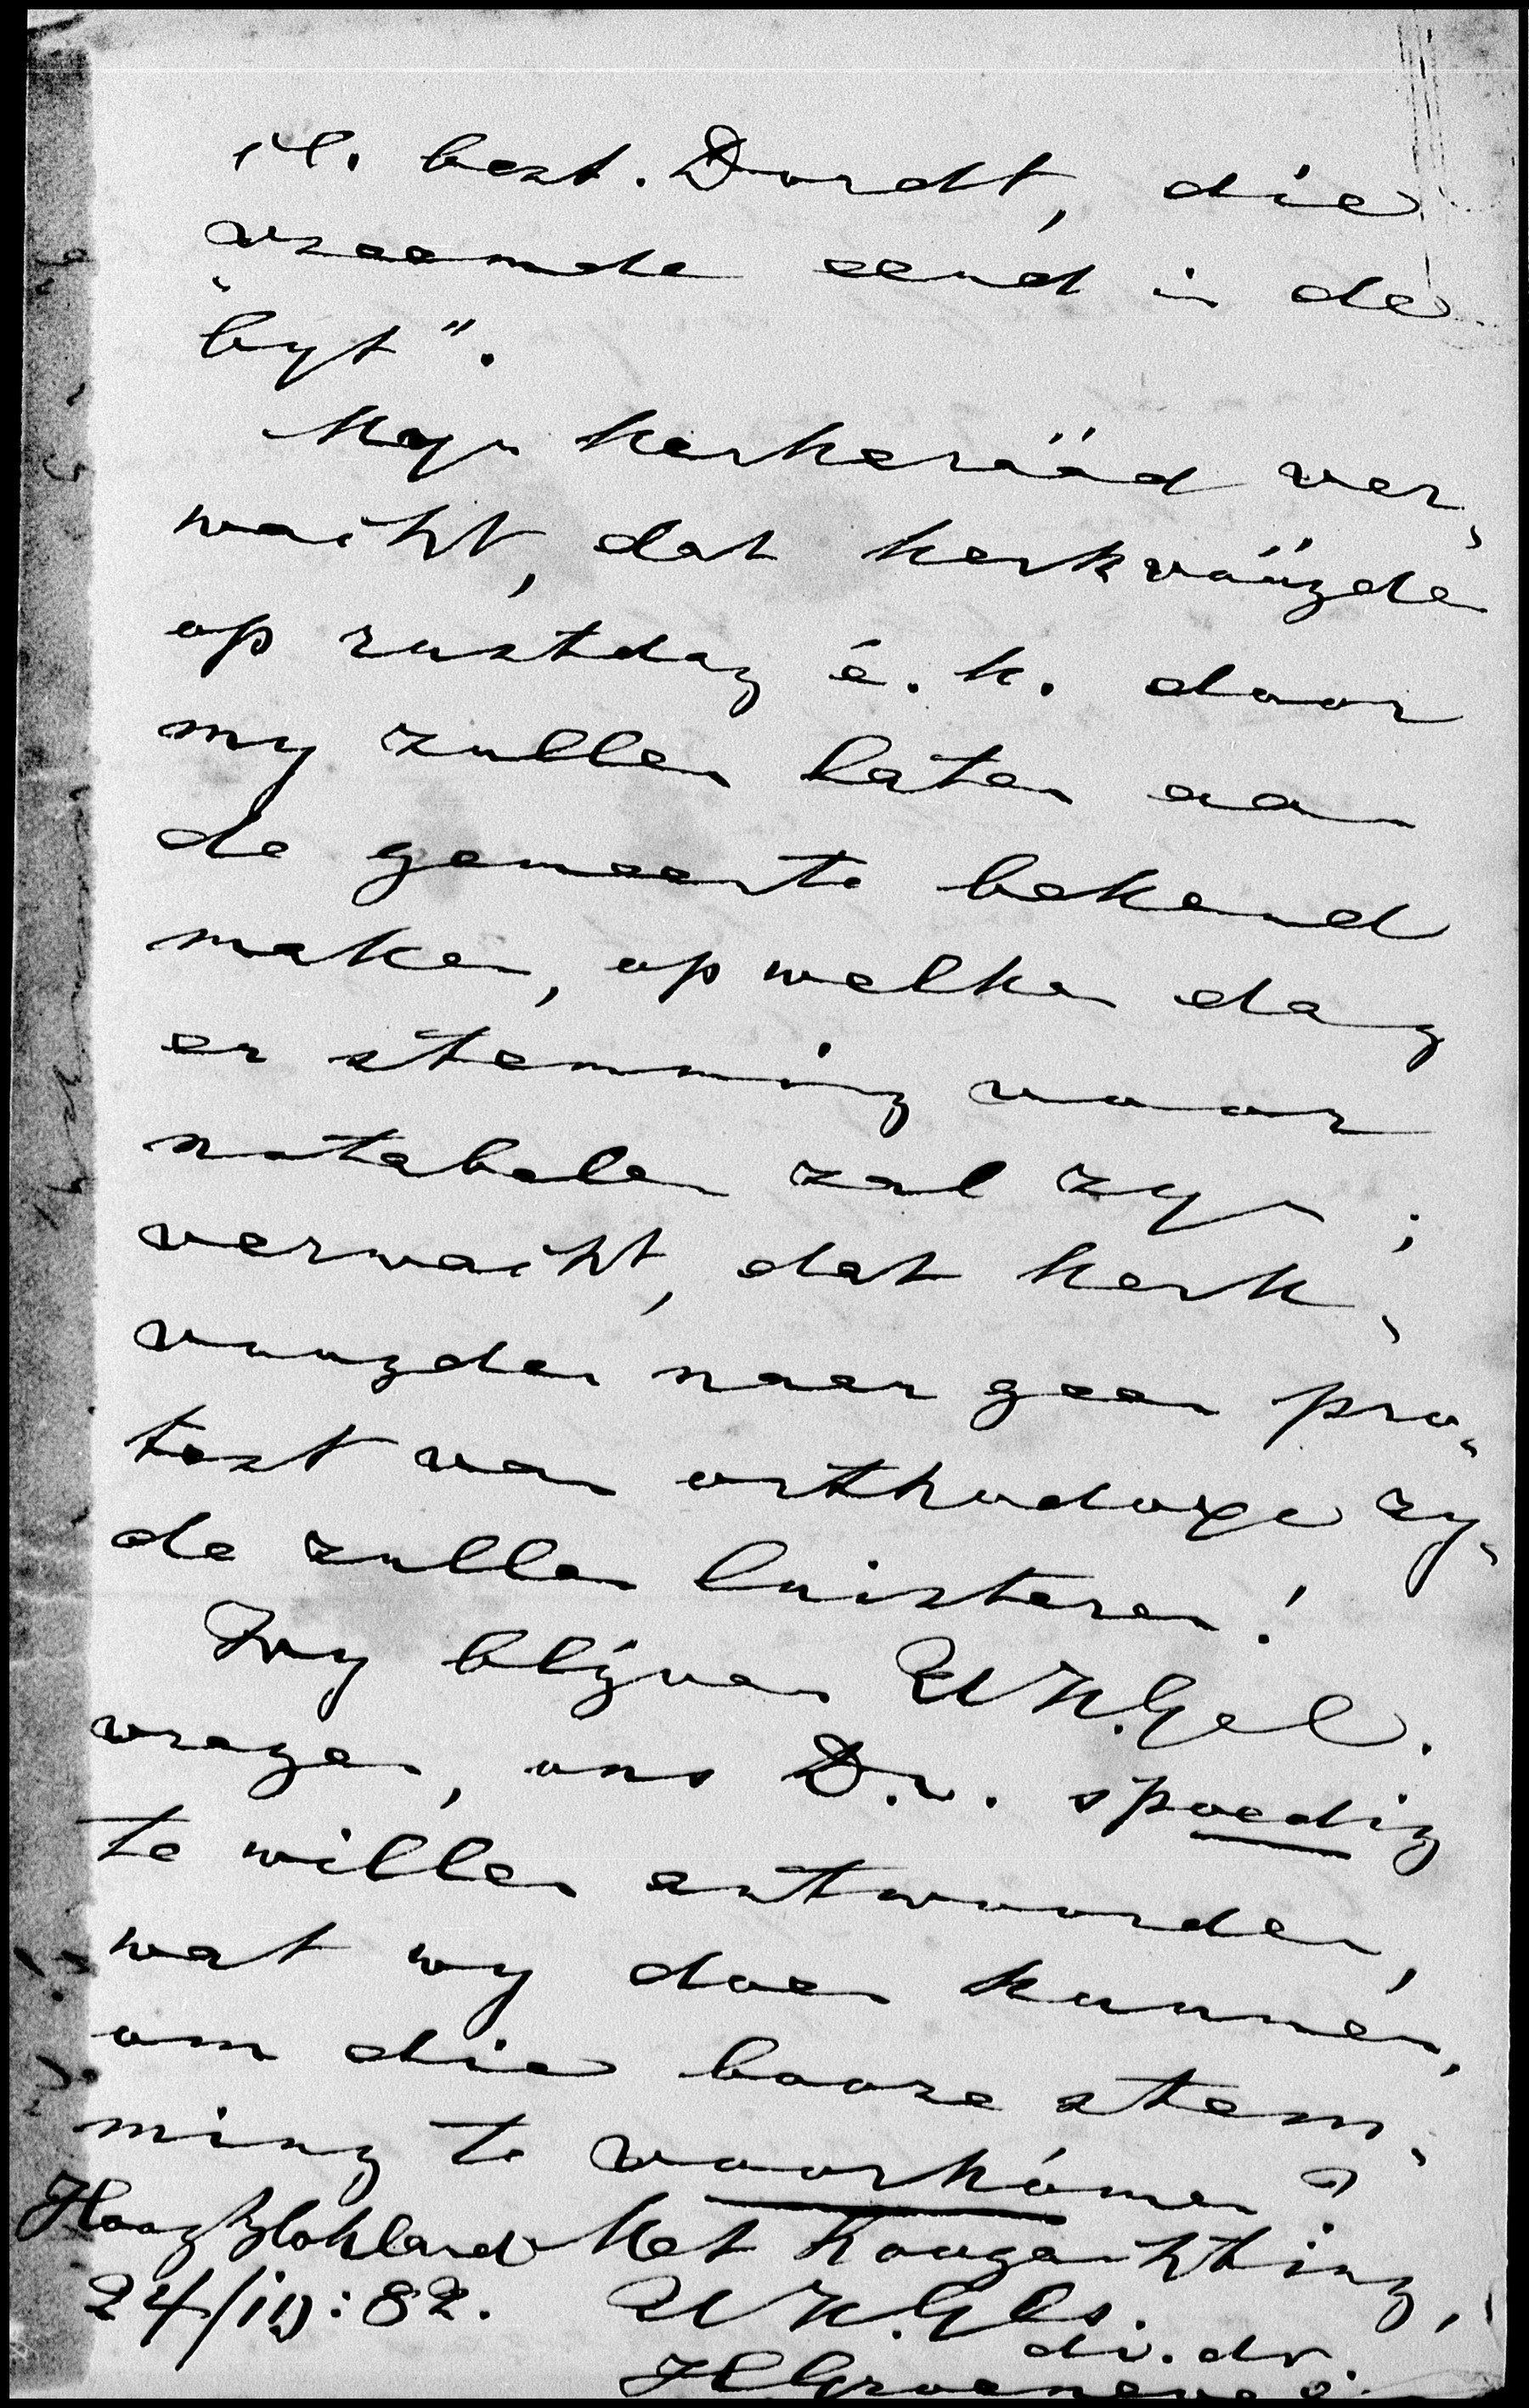 cl. best. Dordt, die
vreemde eend in de
"byt".
Myn kerkeraad ver-
wacht, dat kerkvoogden
op rustdag e. k. door
my zullen laten aan
de gemeente bekend
maken, op welken dag
er stemming voor
notabelen zal zyn;
verwacht, dat kerk-
voogden naar geen pro-
test van orthodoxe zy-
de zullen luisteren!
Wy blyven UH.Gel.
vragen, ons D.v. spoedig
te willen antwoorden,
wat wy doen kunnen,
om die booze stem-
ming te voorkomen?
Hoogblokland Met Hoogachting,
24/10:82. UH.Gls.
dv. dr.